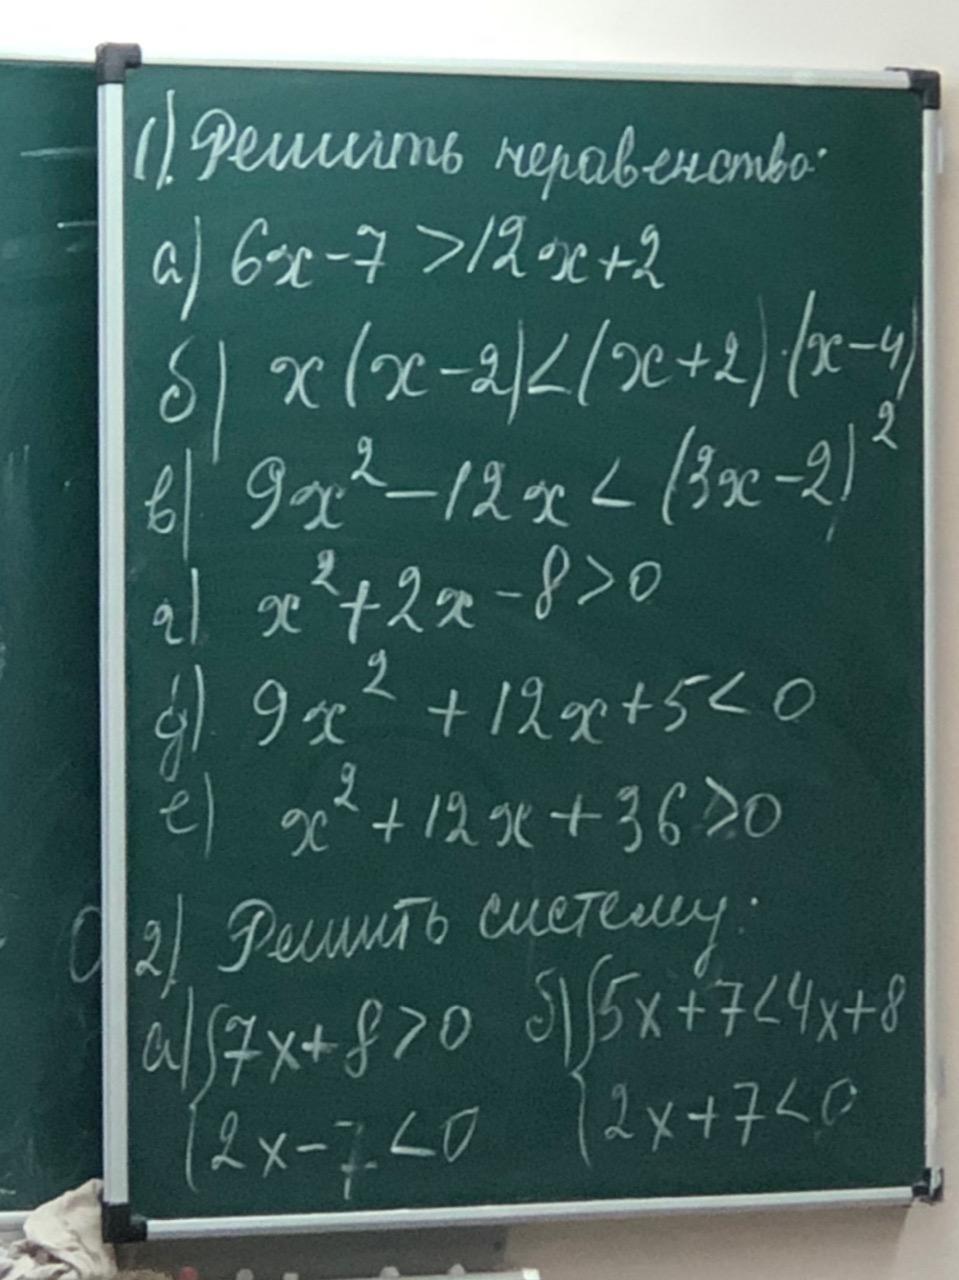 1). Решить неравенство:
а) 6x-7 >12x+2
б) x(x-2)<(x+2)·(x-4)
в) 9x²-12x < (3x-2)²
г) x²+2x-8>0
д). 9x²+12x+5<0
е) x²+12x+36>0
2) Решить систему:
а) {7x+8>0 б) {5x+7<4x+8
{2x-7<0 {2x+7<0